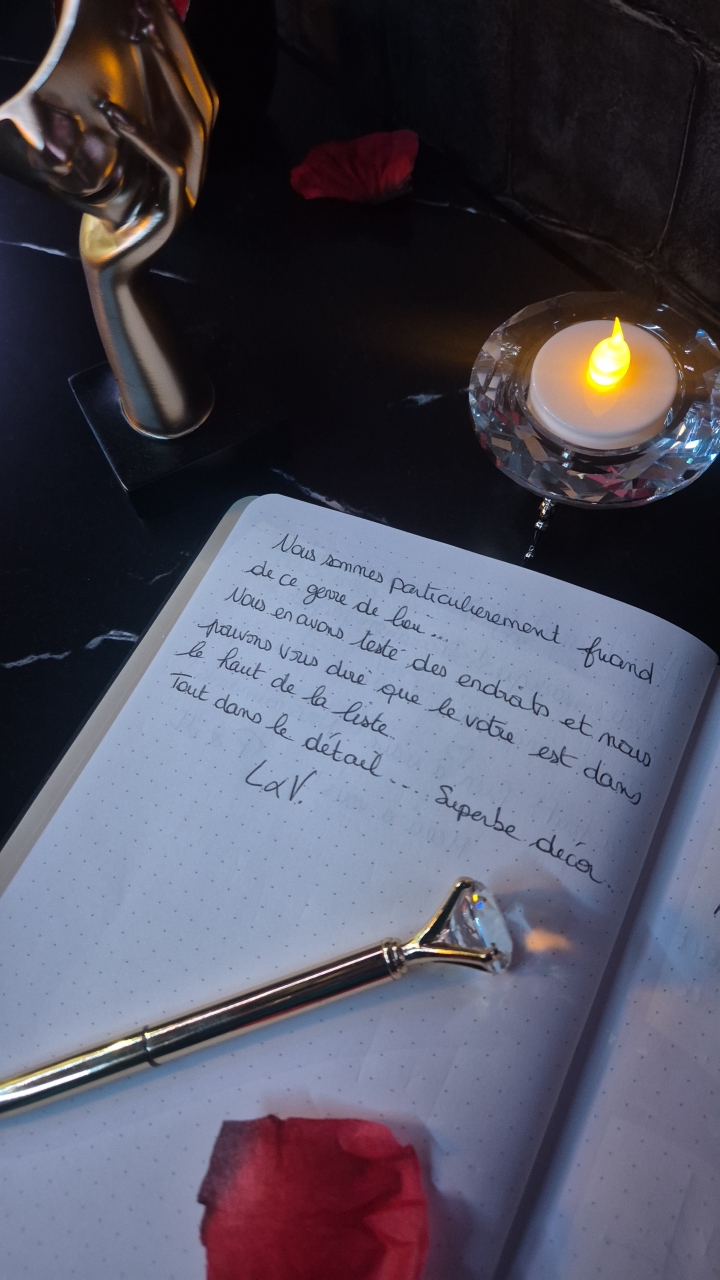 Nous sommes particulièrement friand
de ce genre de lieu...
Nous en avons testé des endroits et nous
pouvons vous dire que le votre est dans
le haut de la liste.
Tout dans le détail... Superbe décor.
L&V.